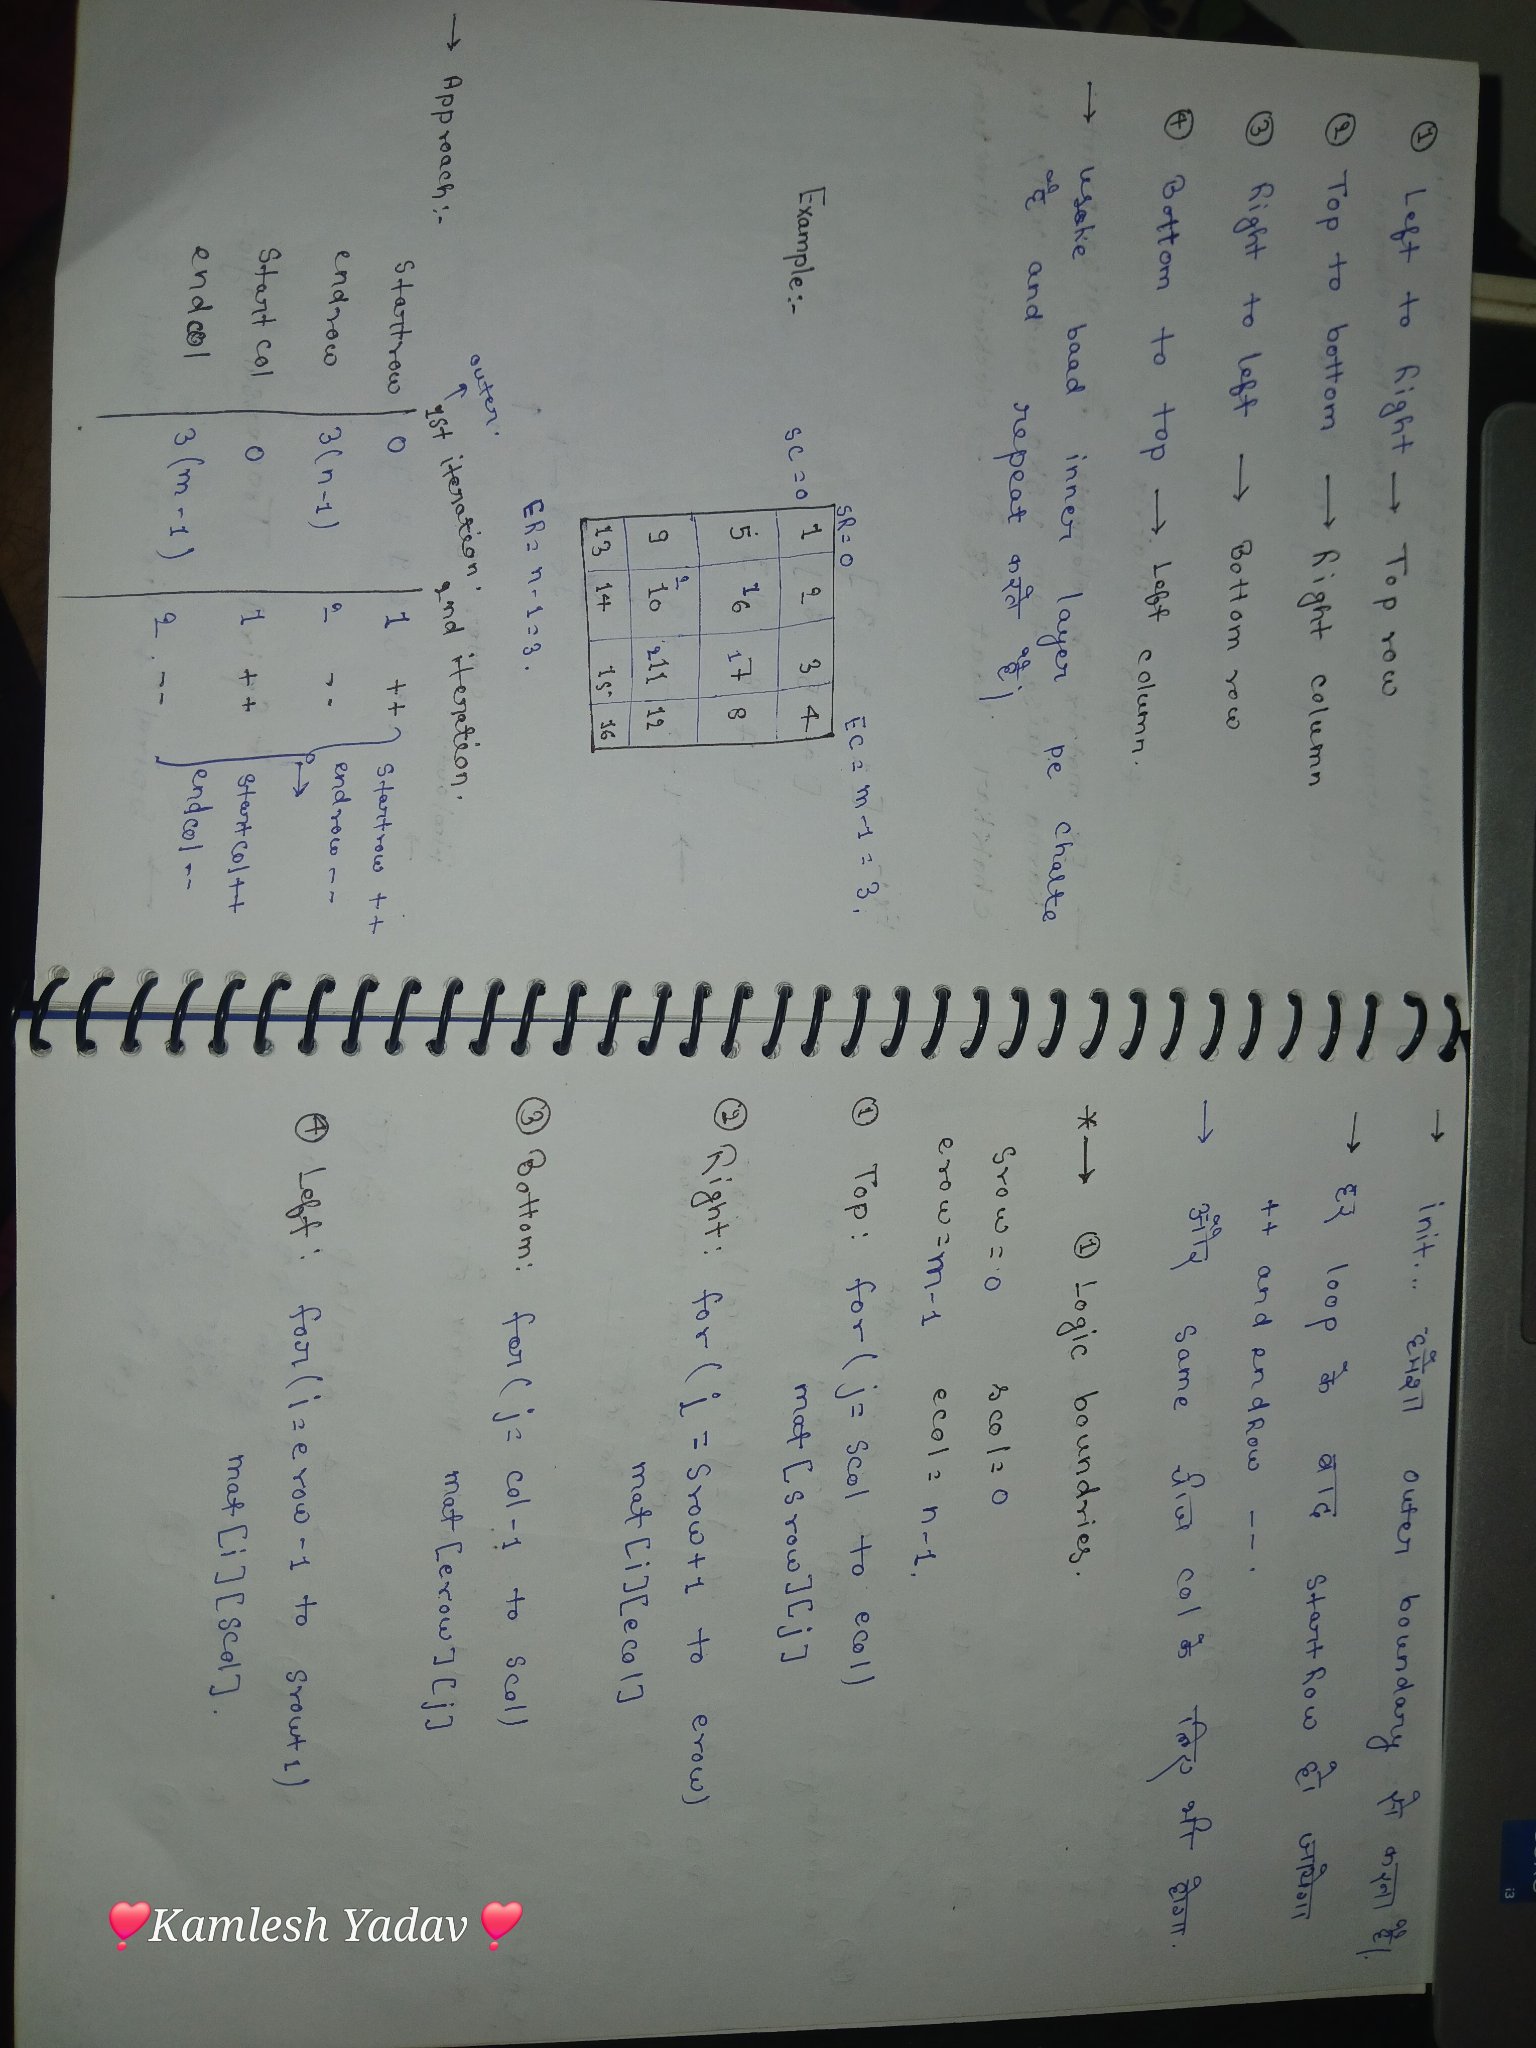 ① Left to Right → Top row
② Top to bottom → Right column
③ Right to left → Bottom row
④ Bottom to top → Left column.
→ uske baad inner layer pe chalte
है and repeat करते है।
Example:-
SR=0
EC=m-1=3.
SC=0
1 2 3 4
5 16 17 8
9 210 211 12
13 14 15 16
ER=n-1=3.
outer.
→ Approach:-
1st iteration.
2nd iteration.
Startrow 0 1 ++ Startrow ++
endrow 3(n-1) 2 -- endrow --
Start col 0 1 ++ Startcol++
endcol 3(m-1) 2 -- endcol --
→ init.. हमेशा outer boundary से करना है।
→ हर loop के बाद StartRow हो जायेगा
++ and endRow --.
→ और Same चीज col के लिए भी होगा.
*→ ① Logic boundries.
Srow=0 Scol=0
erow=m-1 ecol=n-1.
① Top: for(j= Scol to ecol)
mat[Srow][j]
② Right: for(i=Srow+1 to erow)
mat[i][ecol]
③ Bottom: for(j= col-1 to Scol)
mat[erow][j]
④ Left: for(i=erow-1 to Srow+1)
mat[i][Scol].
i3
Kamlesh Yadav